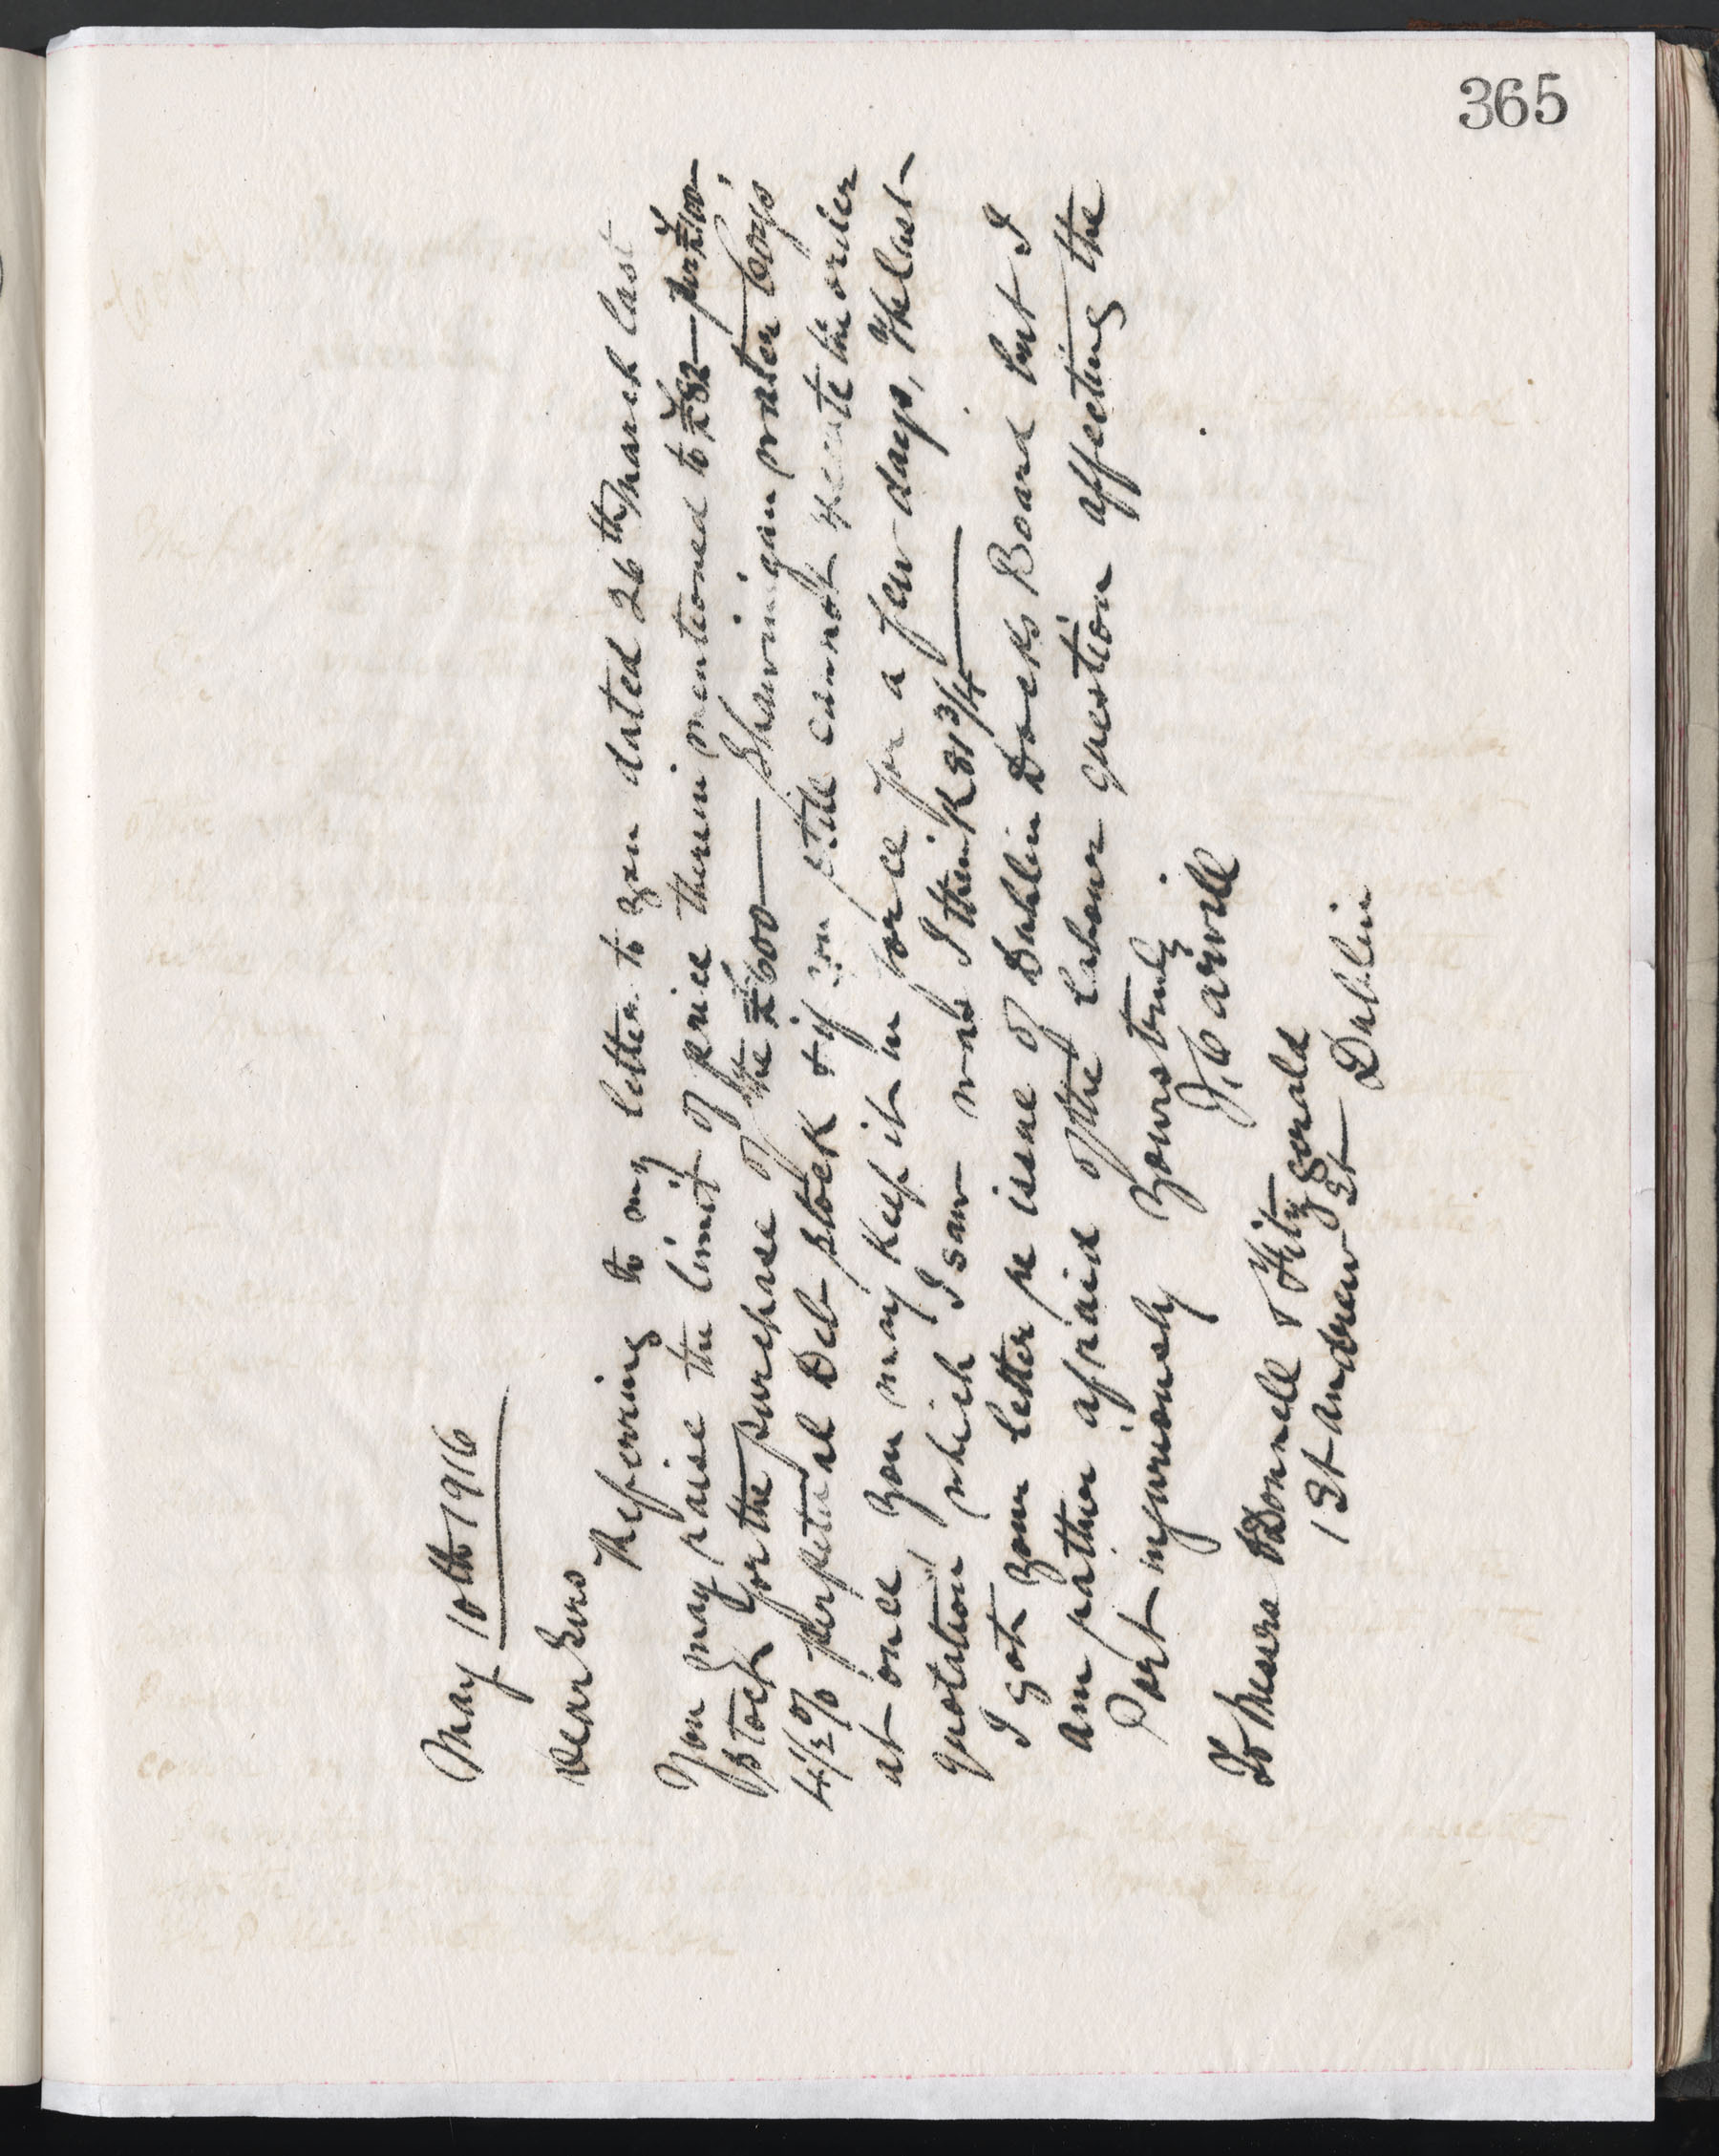 365
May 10th 1916
Dear Sirs
Referring to my letter to you dated 26th March last
You may raise the limit of price therein mentioned to £82 — per £100
stock for the purchase of the £600 — Shawinigan Water Coy's
4½% perpetual Deb stock & if you still cannot execute the order
at once you may keep it in force for a few days, The last
quotation which I saw was I think 81¾
I got your letter re issue of Dublin Docks Board but I
am rather afraid of the Labour question affecting the
Port injuriously Yours truly
J. Carvill
To Messrs O'Donnell & Fitzgerald
1 St Andrew St Dublin